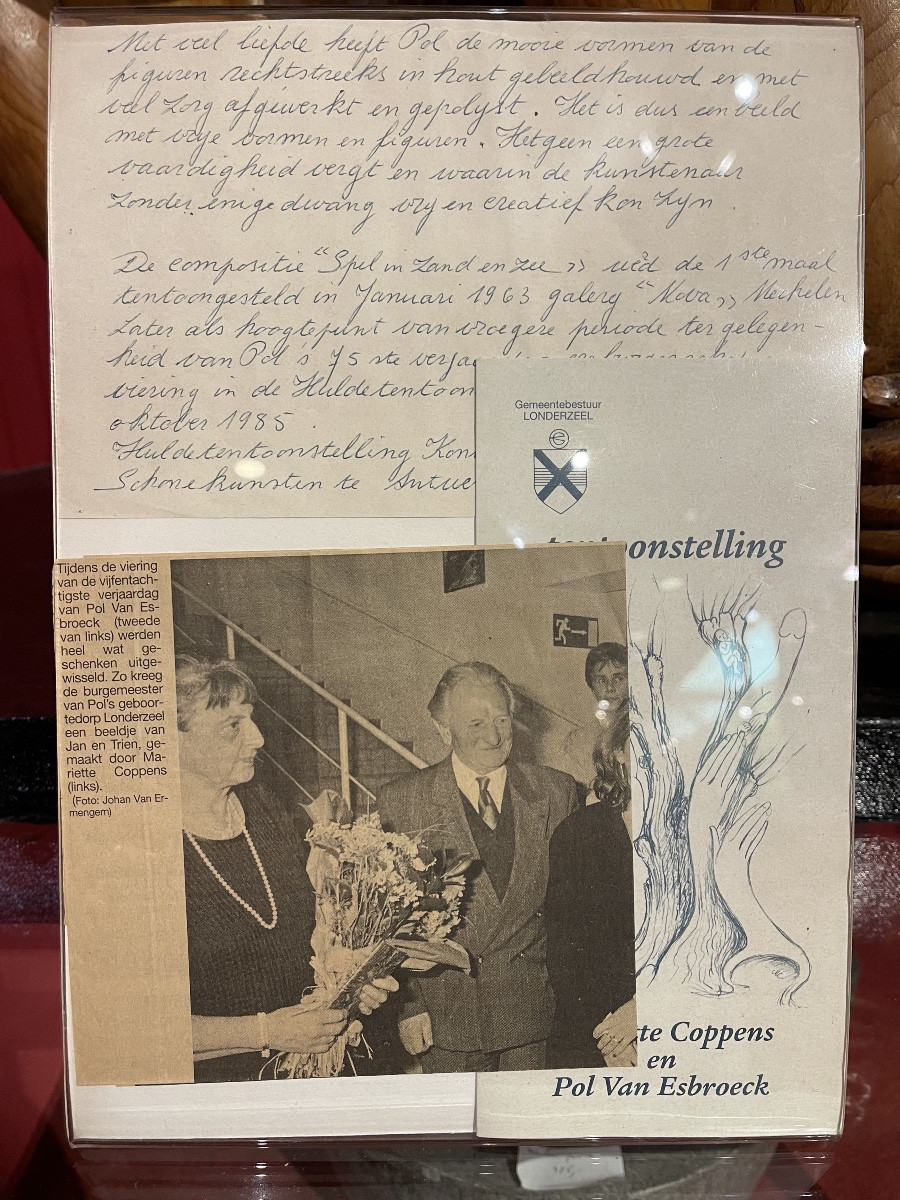 Met veel liefde heeft Pol de mooie vormen van de
figuren rechtstreeks in hout gebeeldhouwd en met
veel zorg afgewerkt en gepolyst. Het is dus een beeld
met vrye vormen en figuren. Hetgeen een grote
vaardigheid vergt en waarin de kunstenaar
zonder enige dwang vry en creatief kon zyn.
De compositie "Spel in zand en zee" werd de 1ste maal
tentoongesteld in Januari 1963 galery "Nova" Mechelen
Later als hoogtepunt van vroegere periode ter gelegen-
heid van Pol's 75 ste verjaa
viering in de Huldetentoon
oktober 1985.
Huldetentoonstelling Kon
Schone kunsten te Antwe
Gemeentebestuur
LONDERZEEL
tentoonstelling
Tijdens de viering
van de vijfentach-
tigste verjaardag
van Pol Van Es-
broeck (tweede
van links) werden
heel wat ge-
schenken uitge-
wisseld. Zo kreeg
de burgemeester
van Pol's geboor-
tedorp Londerzeel
een beeldje van
Jan en Trien, ge-
maakt door Ma-
riette Coppens
(links).
(Foto: Johan Van Er-
mengem)
tte Coppens
en
Pol Van Esbroeck